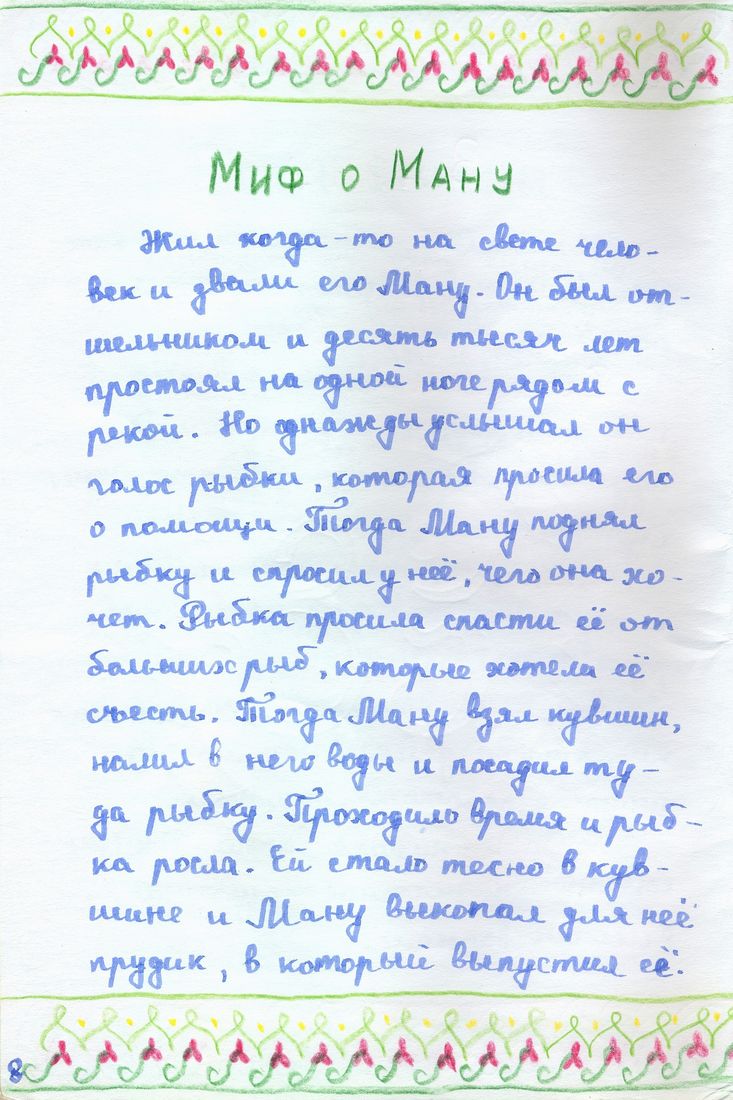 Миф о Ману
Жил когда-то на свете чело-
век и звали его Ману. Он был от-
шельником и десять тысяч лет
простоял на одной ноге рядом с
рекой. Но однажды услышал он
голос рыбки, которая просила его
о помощи. Тогда Ману поднял
рыбку и спросил у неё, чего она хо-
чет. Рыбка просила спасти её от
больших рыб, которые хотела её
съесть. Тогда Ману взял кувшин,
налил в него воды и посадил ту-
да рыбку. Проходило время и рыб-
ка росла. Ей стало тесно в кув-
шине и Ману выкопал для неё
прудик, в который выпустил её.
8